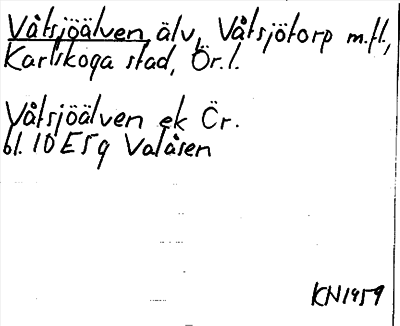 Våtsjöälven, älv, Våtsjötorp m.fl.,
Karlskoga stad, Ör.l.
Våtsjöälven ek Ör.
bl. 10E5g Valåsen
KN1959